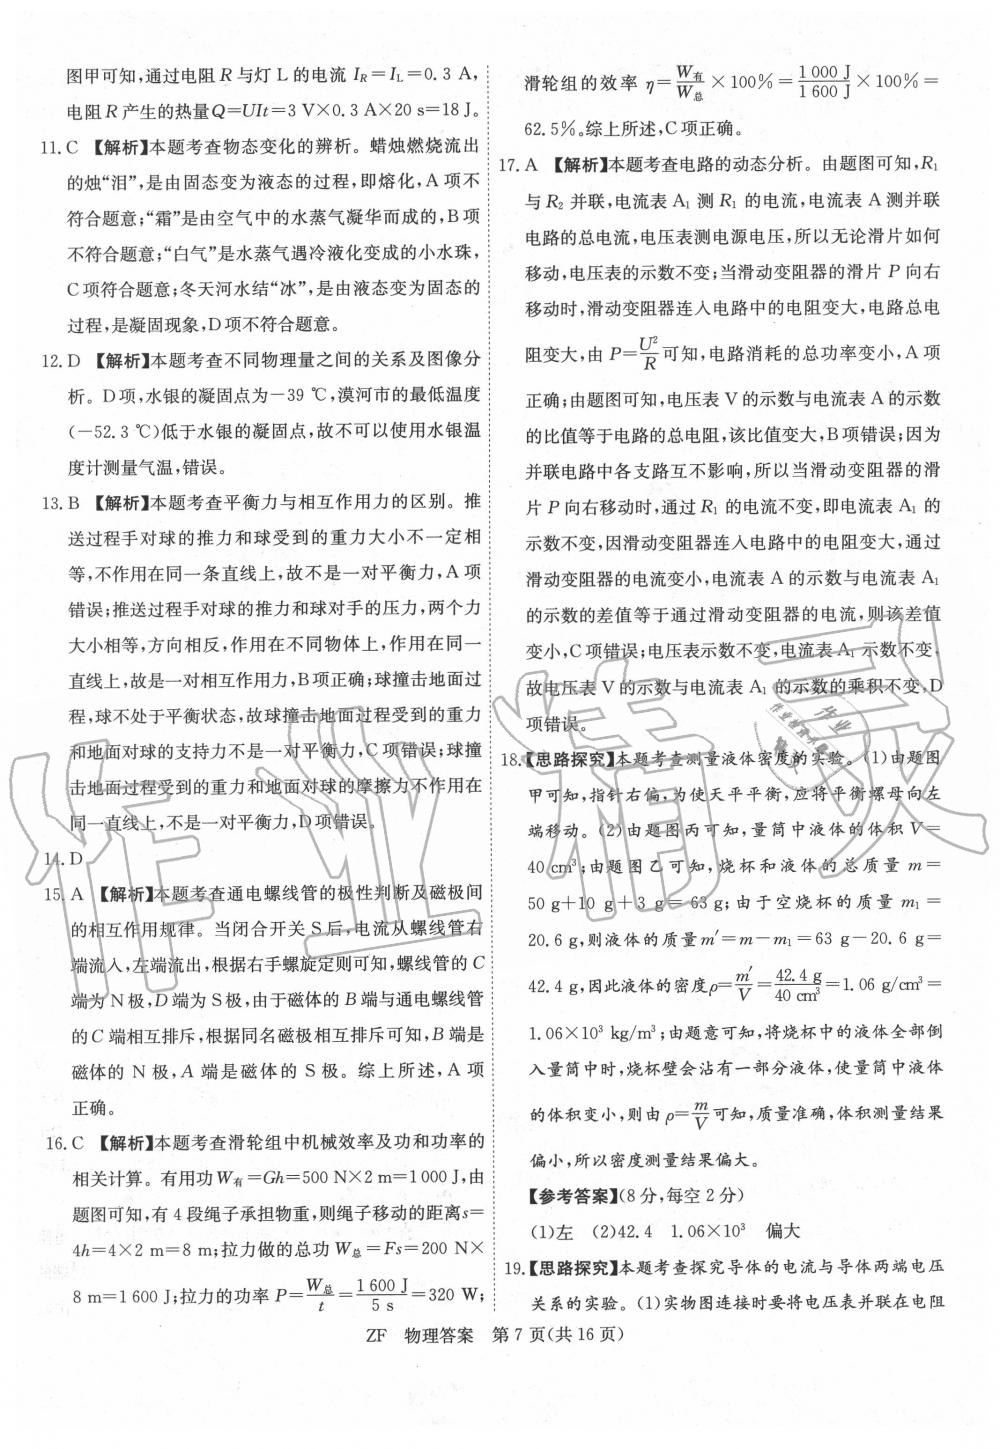 图甲可知,通过电阻 R 与灯 L 的电流 I_R=I_L=0.3 A,
电阻 R 产生的热量 Q=UIt=3 V×0.3 A×20 s=18 J。
11. C 【解析】本题考查物态变化的辨析。蜡烛燃烧流出
的烛“泪”,是由固态变为液态的过程,即熔化,A 项不
符合题意;“霜”是由空气中的水蒸气凝华而成的,B项
不符合题意;“白气”是水蒸气遇冷液化变成的小水珠,
C项符合题意;冬天河水结“冰”,是由液态变为固态的
过程,是凝固现象,D项不符合题意。
12. D 【解析】本题考查不同物理量之间的关系及图像分
析。D项,水银的凝固点为−39 ℃,漠河市的最低温度
(−52.3 ℃)低于水银的凝固点,故不可以使用水银温
度计测量气温,错误。
13. B 【解析】本题考查平衡力与相互作用力的区别。推
送过程手对球的推力和球受到的重力大小不一定相
等,不作用在同一条直线上,故不是一对平衡力,A 项
错误;推送过程手对球的推力和球对手的压力,两个力
大小相等,方向相反,作用在不同物体上,作用在同一
直线上,故是一对相互作用力,B项正确;球撞击地面过
程,球不处于平衡状态,故球撞击地面过程受到的重力
和地面对球的支持力不是一对平衡力,C项错误;球撞
击地面过程受到的重力和地面对球的摩擦力不作用在
同一直线上,不是一对平衡力,D项错误。
14. D
15. A 【解析】本题考查通电螺线管的极性判断及磁极间
的相互作用规律。当闭合开关 S后,电流从螺线管右
端流入,左端流出,根据右手螺旋定则可知,螺线管的 C
端为 N极,D端为 S极,由于磁体的 B端与通电螺线管
的 C 端相互排斥,根据同名磁极相互排斥可知,B 端是
磁体的 N 极,A 端是磁体的 S 极。综上所述,A 项
正确。
16. C 【解析】本题考查滑轮组中机械效率及功和功率的
相关计算。有用功 W有=Gh=500 N×2 m=1 000 J,由
题图可知,有 4 段绳子承担物重,则绳子移动的距离 s=
4h=4×2 m=8 m;拉力做的总功 W总=Fs=200 N×
8 m=1 600 J;拉力的功率 P=W总/t=1 600 J/5 s=320 W;
滑轮组的效率 η=W有/W总×100%=1 000 J/1 600 J×100%=
62.5%。综上所述,C项正确。
17. A 【解析】本题考查电路的动态分析。由题图可知,R₁
与 R₂ 并联,电流表 A₁ 测 R₁ 的电流,电流表 A 测并联
电路的总电流,电压表测电源电压,所以无论滑片如何
移动,电压表的示数不变;当滑动变阻器的滑片 P 向右
移动时,滑动变阻器连入电路中的电阻变大,电路总电
阻变大,由 P=U²/R可知,电路消耗的总功率变小,A 项
正确;由题图可知,电压表 V 的示数与电流表 A 的示数
的比值等于电路的总电阻,该比值变大,B项错误;因为
并联电路中各支路互不影响,所以当滑动变阻器的滑
片 P 向右移动时,通过 R₁ 的电流不变,即电流表 A₁ 的
示数不变,因滑动变阻器连入电路中的电阻变大,通过
滑动变阻器的电流变小,电流表 A 的示数与电流表 A₁
的示数的差值等于通过滑动变阻器的电流,则该差值
变小,C项错误;电压表示数不变,电流表 A₁ 示数不变,
故电压表 V 的示数与电流表 A₁ 的示数的乘积不变,D
项错误。
18.【思路探究】本题考查测量液体密度的实验。(1)由题图
甲可知,指针右偏,为使天平平衡,应将平衡螺母向左
端移动。(2)由题图丙可知,量筒中液体的体积 V=
40 cm³;由题图乙可知,烧杯和液体的总质量 m=
50 g+10 g+3 g=63 g;由于空烧杯的质量 m₁=
20.6 g,则液体的质量 m′=m−m₁=63 g−20.6 g=
42.4 g,因此液体的密度ρ=m′/V=42.4 g/40 cm³=1.06 g/cm³=
1.06×10³ kg/m³;由题意可知,将烧杯中的液体全部倒
入量筒中时,烧杯壁会沾有一部分液体,使量筒中液体
的体积变小,则由 ρ=m/V可知,质量准确,体积测量结果
偏小,所以密度测量结果偏大。
【参考答案】(8分,每空2分)
(1)左 (2)42.4 1.06×10³ 偏大
19.【思路探究】本题考查探究导体的电流与导体两端电压
关系的实验。(1)实物图连接时要将电压表并联在电阻
ZF 物理答案 第 7 页(共 16 页)
作业精灵